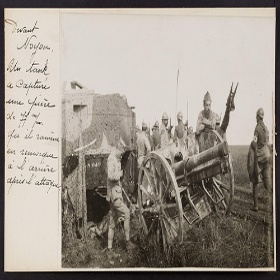 Devant
Noyon.
Un tank
a capturé
une pièce
de 77 m/m
qu'il ramène
en remorque
à l'arrière
après l'attaque